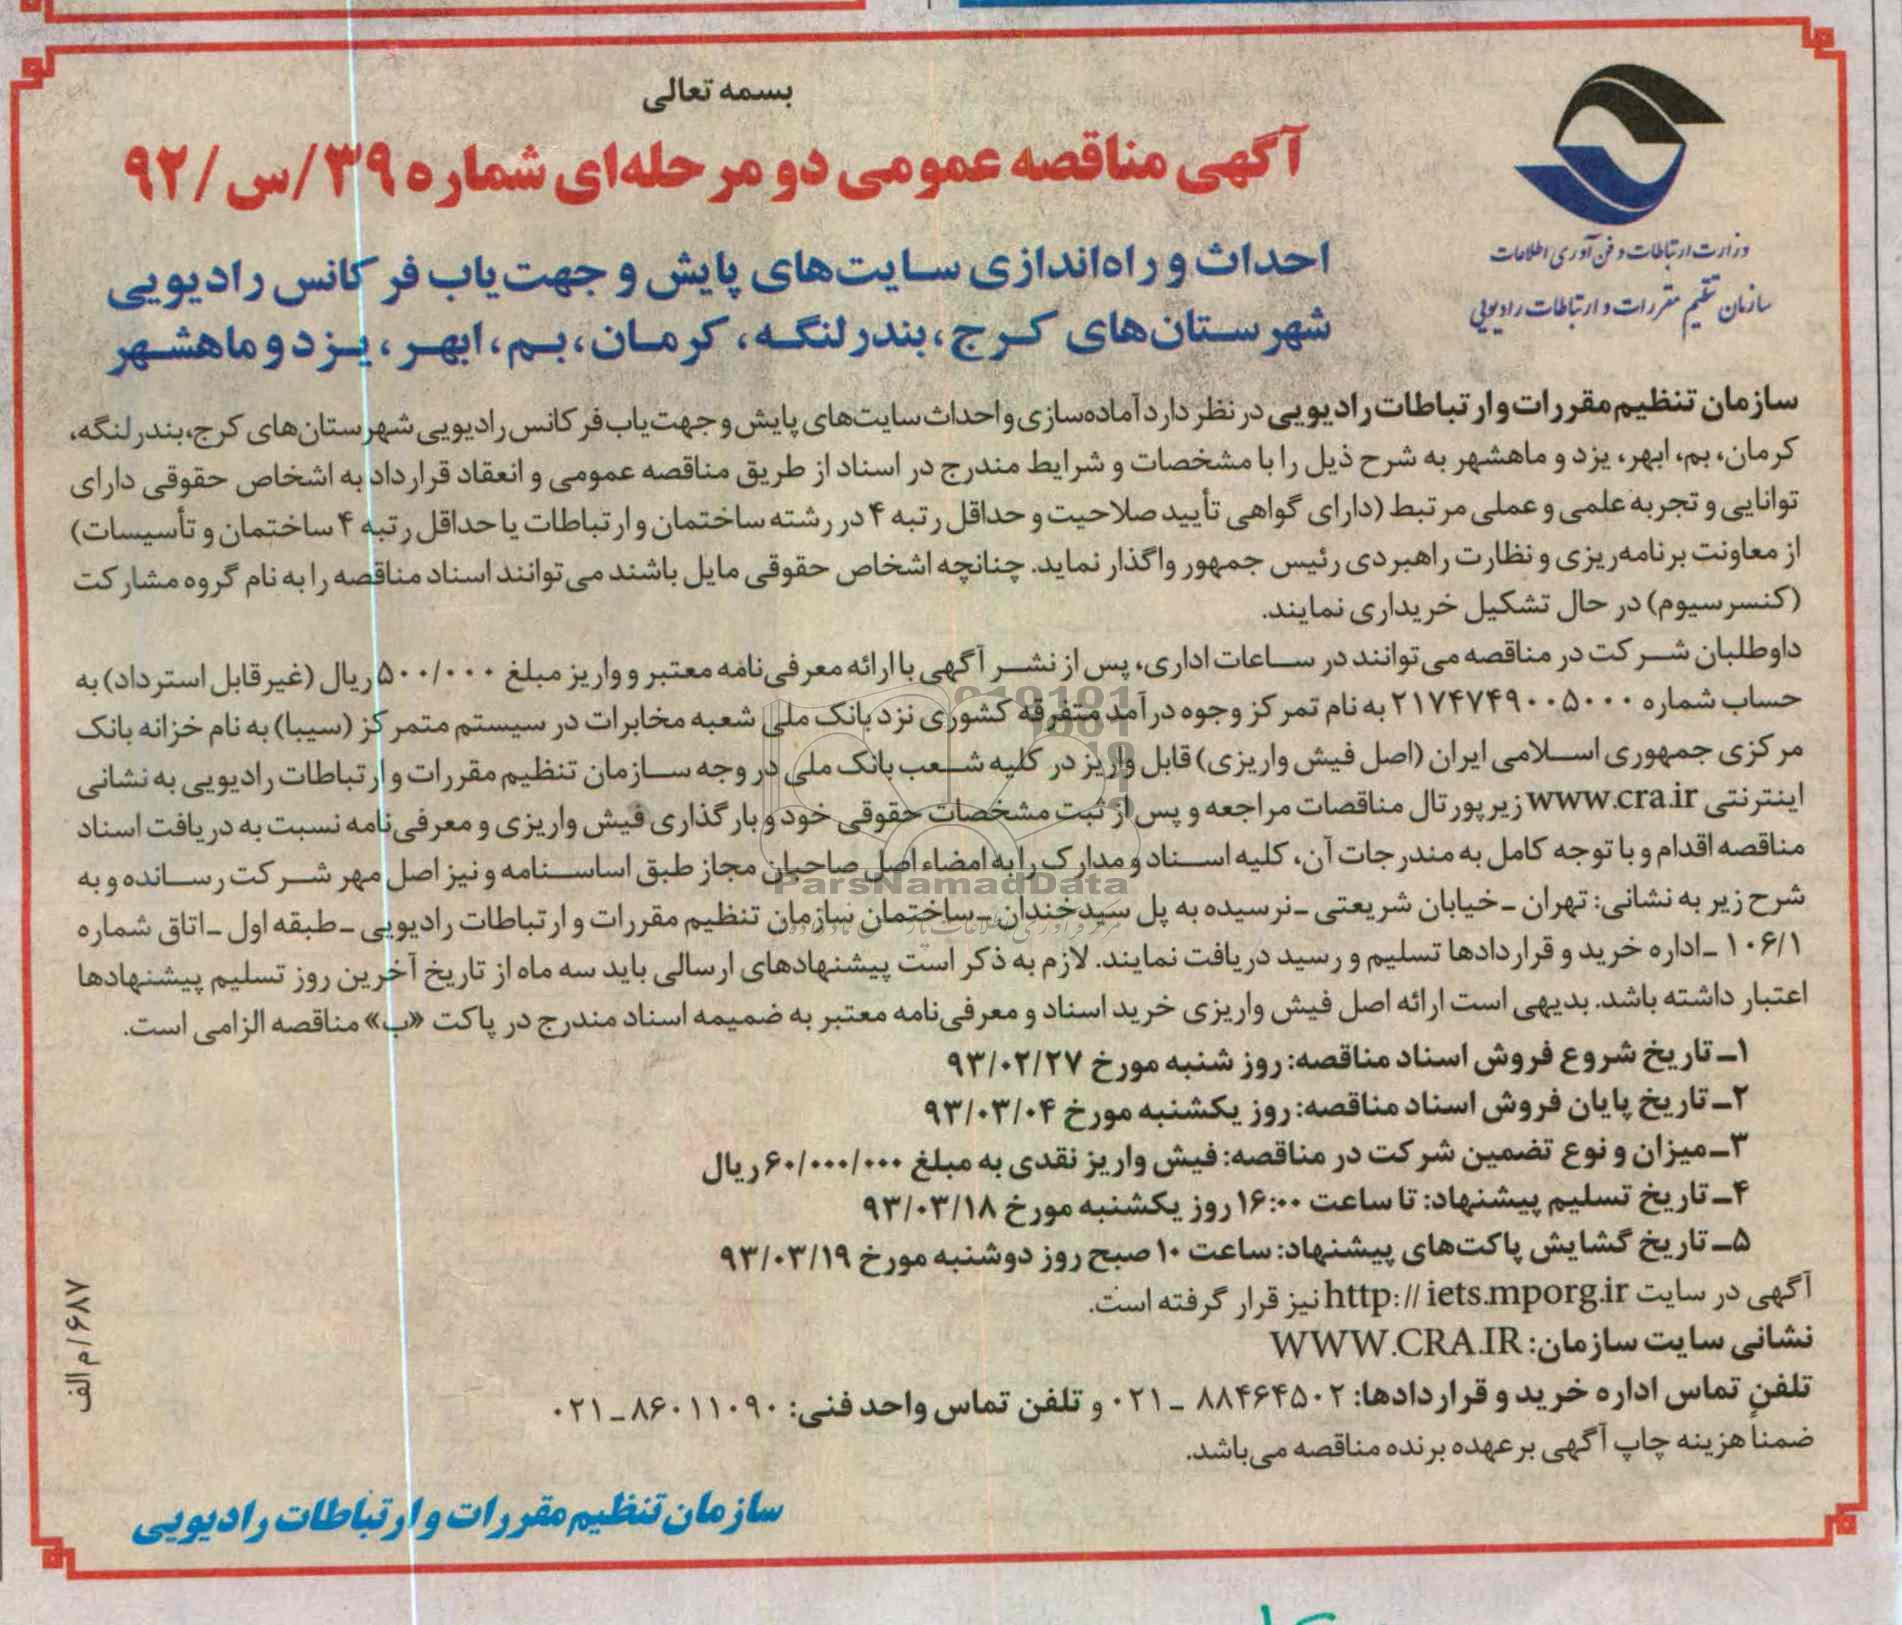 بسمه تعالی
آگهی مناقصه عمومی دو مرحله‌ای شماره ۳۹/س/۹۲
وزارت ارتباطات و فن آوری اطلاعات
سازمان تنظیم مقررات و ارتباطات رادیویی
احداث و راه‌اندازی سایت‌های پایش و جهت‌یاب فرکانس رادیویی
شهرستان‌های کرج، بندرلنگه، کرمان، بم، ابهر، یزد و ماهشهر
سازمان تنظیم مقررات و ارتباطات رادیویی در نظر دارد آماده‌سازی و احداث سایت‌های پایش و جهت‌یاب فرکانس رادیویی شهرستان‌های کرج، بندرلنگه،
کرمان، بم، ابهر، یزد و ماهشهر به شرح ذیل را با مشخصات و شرایط مندرج در اسناد از طریق مناقصه عمومی و انعقاد قرارداد به اشخاص حقوقی دارای
توانایی و تجربه علمی و عملی مرتبط (دارای گواهی تأیید صلاحیت و حداقل رتبه ۴ در رشته ساختمان و ارتباطات یا حداقل رتبه ۴ ساختمان و تأسیسات)
از معاونت برنامه‌ریزی و نظارت راهبردی رئیس جمهور واگذار نماید. چنانچه اشخاص حقوقی مایل باشند می‌توانند اسناد مناقصه را به نام گروه مشارکت
(کنسرسیوم) در حال تشکیل خریداری نمایند.
داوطلبان شرکت در مناقصه می‌توانند در ساعات اداری، پس از نشر آگهی با ارائه معرفی‌نامه معتبر و واریز مبلغ ۵۰۰/۰۰۰ ریال (غیرقابل استرداد) به
حساب شماره ۲۱۷۴۷۴۹۰۰۵۰۰۰ به نام تمرکز وجوه درآمد متفرقه کشوری نزد بانک ملی شعبه مخابرات در سیستم متمرکز (سیبا) به نام خزانه بانک
مرکزی جمهوری اسلامی ایران (اصل فیش واریزی) قابل واریز در کلیه شعب بانک ملی در وجه سازمان تنظیم مقررات و ارتباطات رادیویی به نشانی
اینترنتی www.cra.ir زیر پورتال مناقصات مراجعه و پس از ثبت مشخصات حقوقی خود و بارگذاری فیش واریزی و معرفی‌نامه نسبت به دریافت اسناد
مناقصه اقدام و با توجه کامل به مندرجات آن، کلیه اسناد و مدارک را به امضاء اصل صاحبان مجاز طبق اساسنامه و نیز اصل مهر شرکت رسانده و به
شرح زیر به نشانی: تهران ـ خیابان شریعتی ـ نرسیده به پل سیدخندان ـ ساختمان سازمان تنظیم مقررات و ارتباطات رادیویی ـ طبقه اول ـ اتاق شماره
۱۰۶/۱ ـ اداره خرید و قراردادها تسلیم و رسید دریافت نمایند. لازم به ذکر است پیشنهادهای ارسالی باید سه ماه از تاریخ آخرین روز تسلیم پیشنهادها
اعتبار داشته باشد. بدیهی است ارائه اصل فیش واریزی خرید اسناد و معرفی‌نامه معتبر به ضمیمه اسناد مندرج در پاکت «ب» مناقصه الزامی است.
۱ـ تاریخ شروع فروش اسناد مناقصه: روز شنبه مورخ ۹۳/۰۲/۲۷
۲ـ تاریخ پایان فروش اسناد مناقصه: روز یکشنبه مورخ ۹۳/۰۳/۰۴
۳ـ میزان و نوع تضمین شرکت در مناقصه: فیش واریز نقدی به مبلغ ۶۰/۰۰۰/۰۰۰ ریال
۴ـ تاریخ تسلیم پیشنهاد: تا ساعت ۱۶:۰۰ روز یکشنبه مورخ ۹۳/۰۳/۱۸
۵ـ تاریخ گشایش پاکت‌های پیشنهاد: ساعت ۱۰ صبح روز دوشنبه مورخ ۹۳/۰۳/۱۹
آگهی در سایت http://iets.mporg.ir نیز قرار گرفته است.
نشانی سایت سازمان: WWW.CRA.IR
تلفن تماس اداره خرید و قراردادها: ۸۸۴۶۴۵۰۲ ـ ۰۲۱ و تلفن تماس واحد فنی: ۸۶۰۱۱۰۹۰ـ۰۲۱
ضمناً هزینه چاپ آگهی برعهده برنده مناقصه می‌باشد.
سازمان تنظیم مقررات و ارتباطات رادیویی
۶۸۷/م الف
ParsNamadData